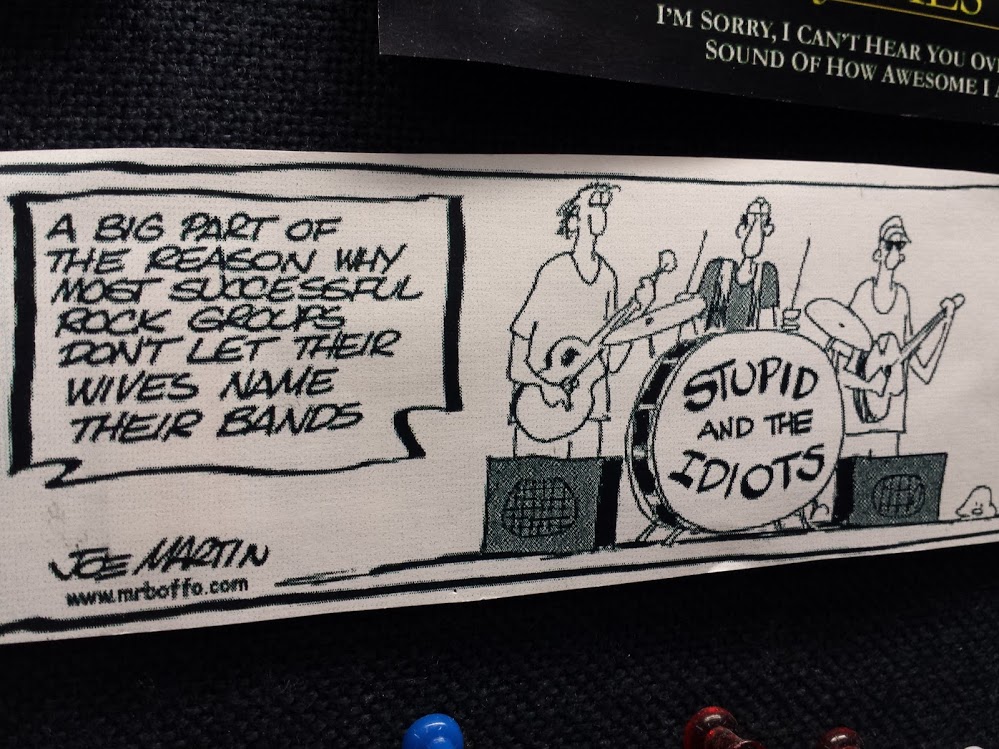 I'M SORRY, I CAN'T HEAR YOU
SOUND OF HOW AWESOME I
A BIG PART OF
THE REASON WHY
MOST SUCCESSFUL
ROCK GROUPS
DON'T LET THEIR
WIVES NAME
THEIR BANDS
STUPID
AND THE
IDIOTS
JOE MARTIN
www.mrboffo.com